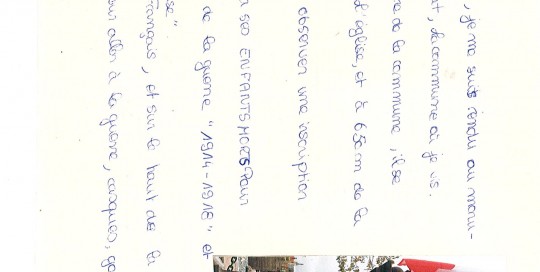 , je me suis rendu au monu-
, la commune où je vis.
de la commune, il se
l'église, et à 65cm de la
observer une inscription
a ses ENFANTS MORTS Pour
de la guerre "1914-1918" et
se".
Français, et sur le haut de la
aller à la guerre, casques,